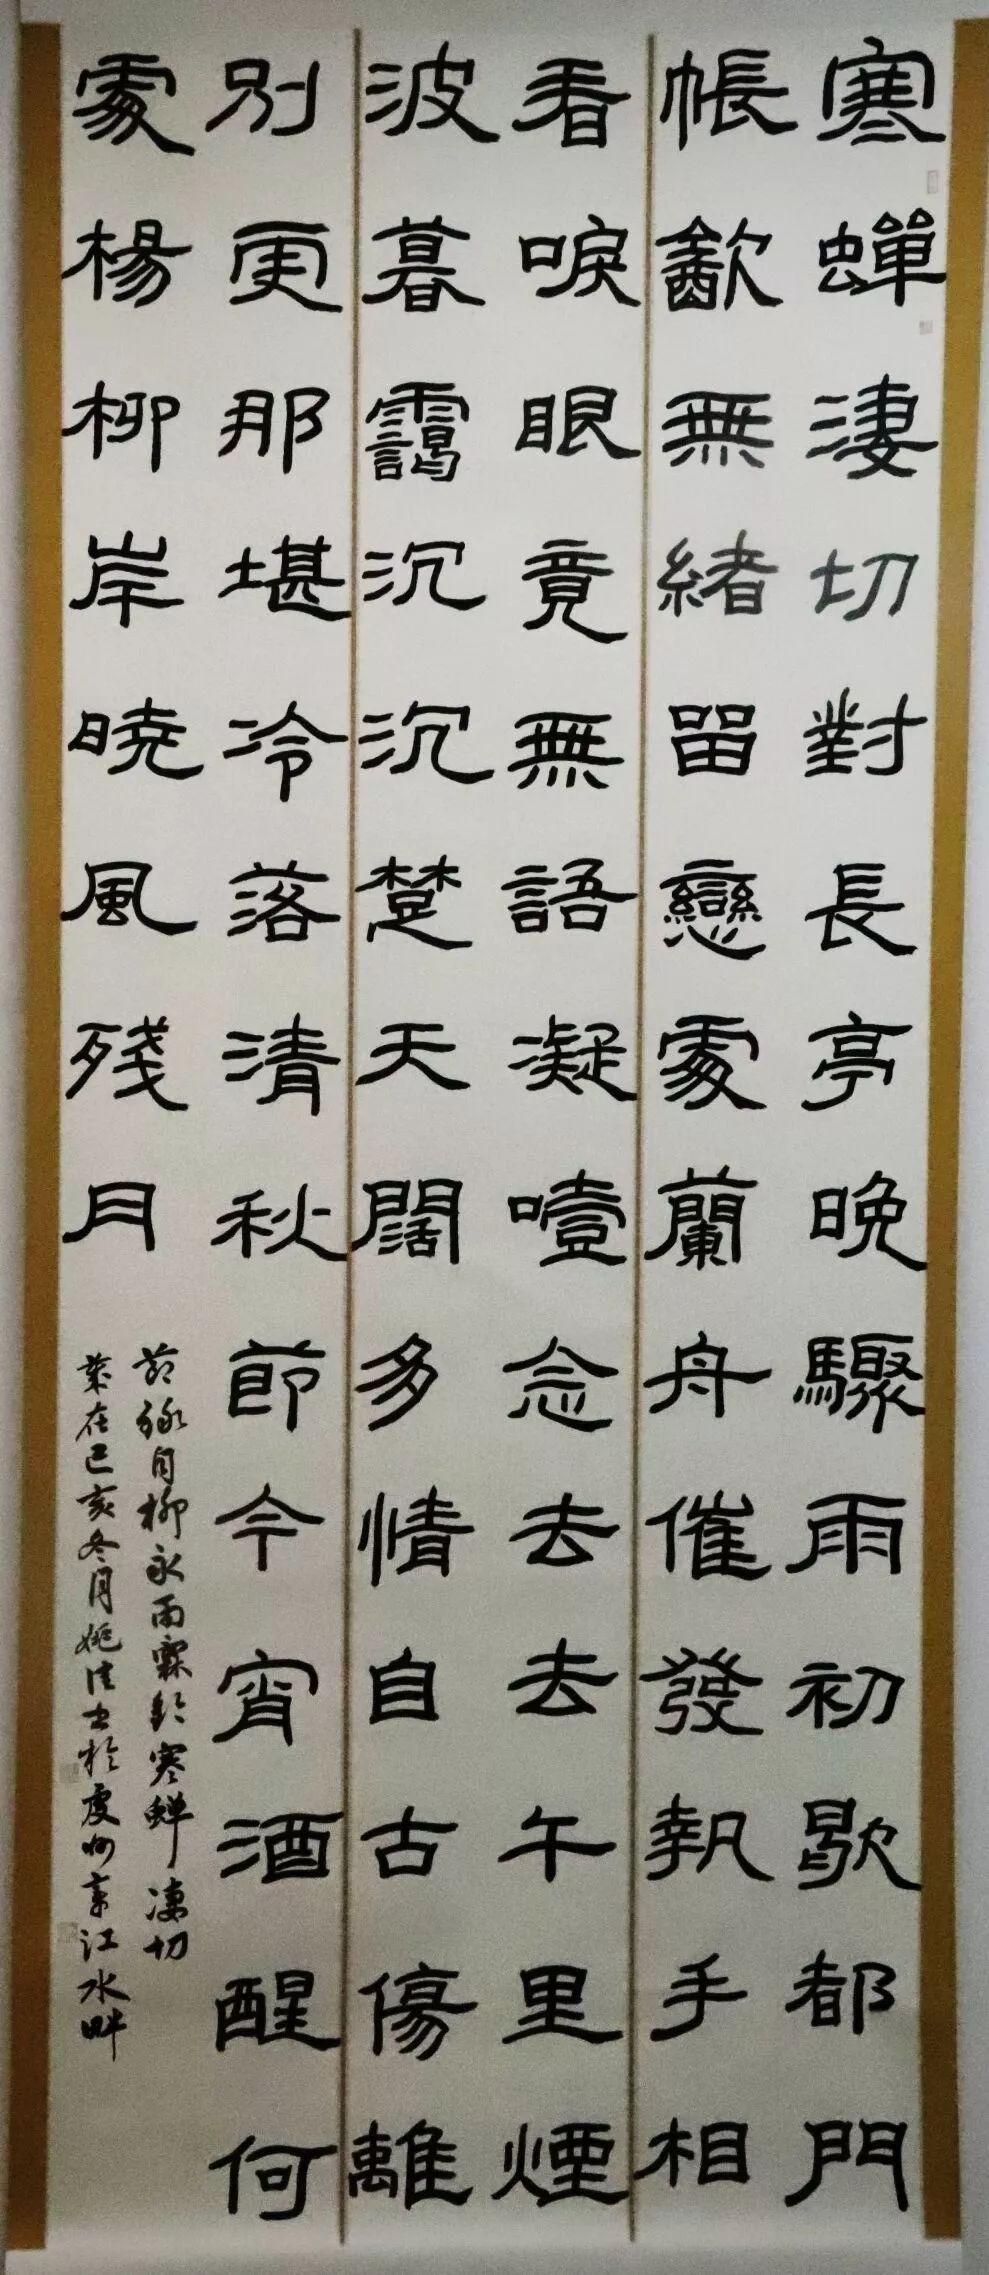 寒蟬淒切對長亭晚驟雨初歇都門
帳㱃無緒留戀處蘭舟催發執手相
看唳眼竟無語凝噎念去去午里煙
波暮靄沉沉楚天闊多情自古傷離
別更那堪冷落清秋節今宵酒醒何
處楊柳岸曉風殘月
節錄自柳永雨霖鈴寒蟬凄切
歲在己亥冬月姚佳书於虔州章江水畔